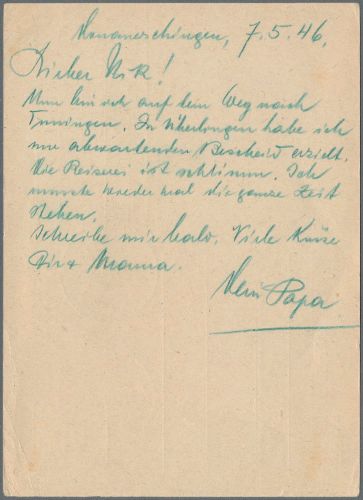 Donaueschingen, 7.5.46.
Lieber !
Nun bin ich auf dem Weg nach
Tuningen. In Überlingen habe ich
nur abwartenden Bescheid erzielt.
Die Reiserei ist schlimm. Ich
musste wieder mal die ganze Zeit
stehen.
Schreibe mir bald. Viele Küsse
Dir + Mama.
Dein Papa